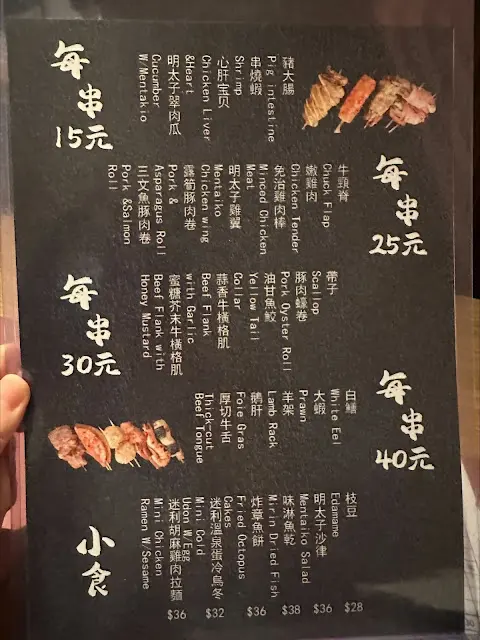 每串
15元
豬大腸
Pig intestine
串燒蝦
Shrimp
心肝宝贝
Chicken Liver
&Heart
明太子翠肉瓜
Cucumber
W/Mentakio
每串
25元
牛頸脊
Chuck Flap
嫩雞肉
Chicken Tender
免治雞肉棒
Minced Chicken
Meat
明太子雞翼
Mentaiko
Chicken wing
露筍豚肉卷
Pork &
Asparagus Roll
三文魚豚肉卷
Pork &Salmon
Roll
每串
30元
帶子
Scallop
豚肉蠔卷
Pork Oyster Roll
油甘魚鮫
Yellow Tail
Collar
蒜香牛橫格肌
Beef Flank
with Garlic
蜜糖芥末牛橫格肌
Beef Flank with
Honey Mustard
每串
40元
白鱔
White Eel
大蝦
Prawn
羊架
Lamb Rack
鵝肝
Foie Gras
厚切牛舌
Thick-cut
Beef Tongue
小食
枝豆
Edamame $28
明太子沙律
Mentaiko Salad $36
味淋魚乾
Mirin Dried Fish $38
炸章魚餅
Fried Octopus
Cakes $36
迷利溫泉蛋冷烏冬
Mini Cold
Udon W/Egg $32
迷利胡麻雞肉拉麵
Mini Chicken
Ramen W/Sesame $36